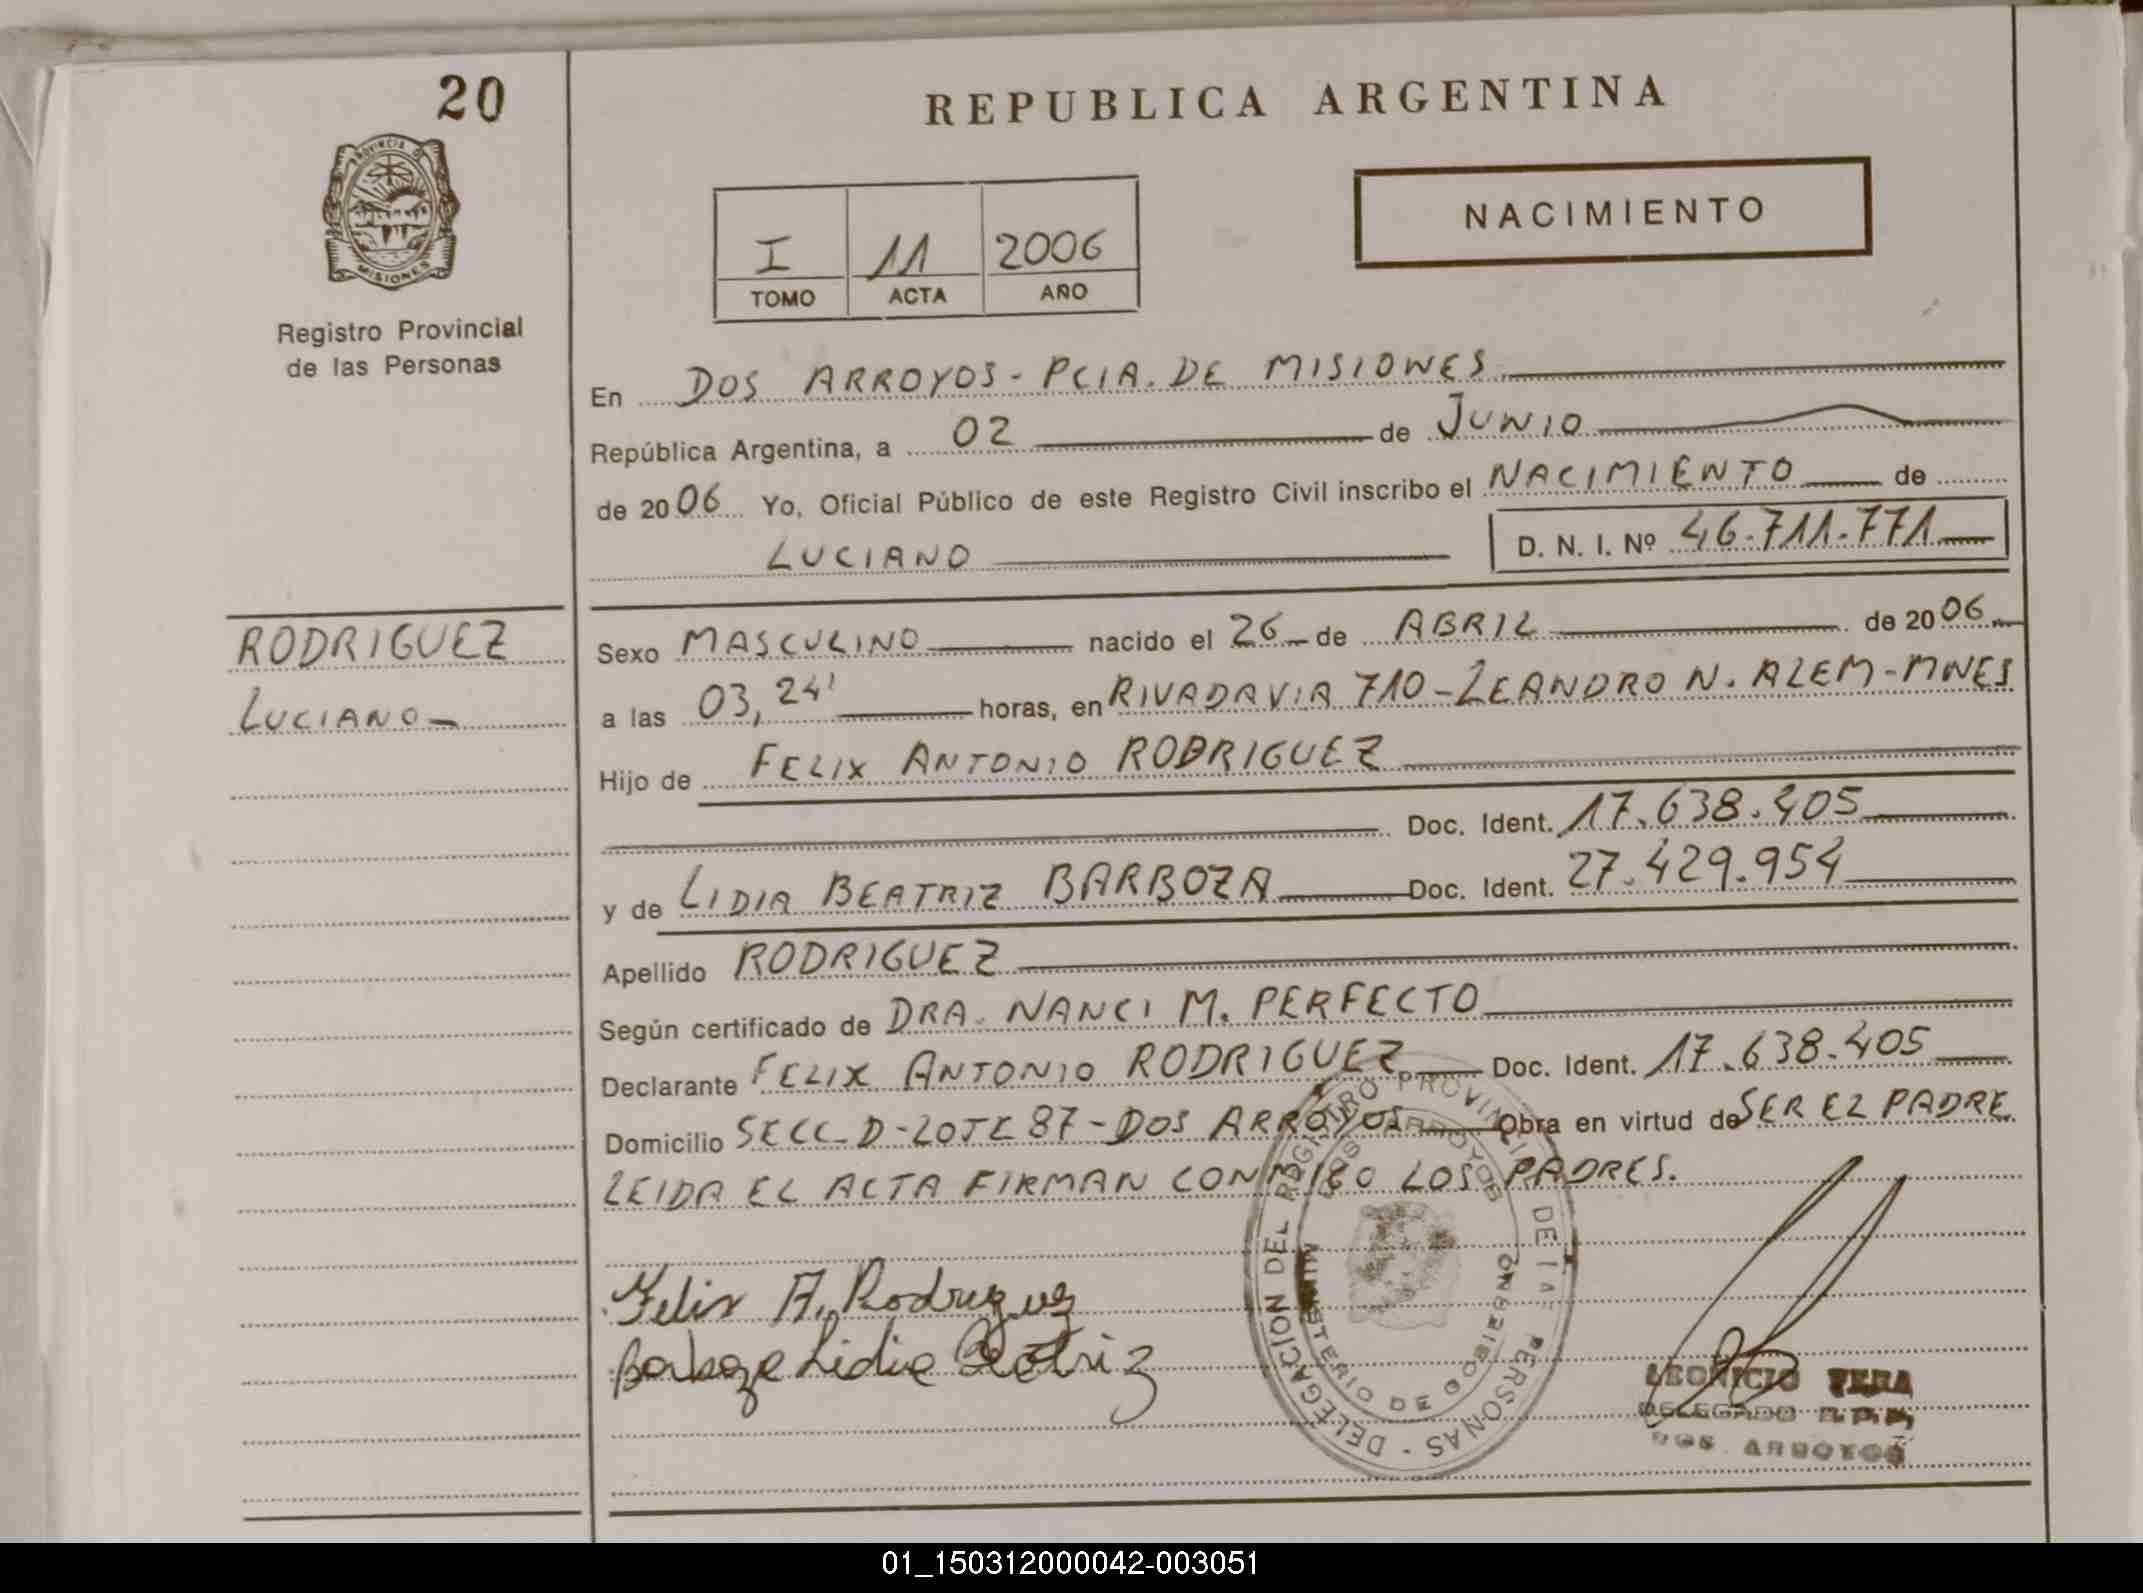 20
PROVINCIA DE
MISIONES
Registro Provincial
de las Personas
REPUBLICA ARGENTINA
NACIMIENTO
I 11 2006
TOMO ACTA AÑO
En DOS ARROYOS - PCIA. DE MISIONES
República Argentina, a 02 de JUNIO
de 2006 Yo, Oficial Público de este Registro Civil inscribo el NACIMIENTO de
LUCIANO D. N. I. Nº 46.711.771
RODRIGUEZ
LUCIANO
Sexo MASCULINO nacido el 26 de ABRIL de 2006
a las 03,24' horas, en RIVADAVIA 710 - LEANDRO N. ALEM - MNES
Hijo de FELIX ANTONIO RODRIGUEZ
Doc. Ident. 17.638.405
y de LIDIA BEATRIZ BARBOZA Doc. Ident. 27.429.954
Apellido RODRIGUEZ
Según certificado de DRA. NANCI M. PERFECTO
Declarante FELIX ANTONIO RODRIGUEZ Doc. Ident. 17.638.405
Domicilio SECC D - LOTE 87 - DOS ARROYOS Obra en virtud de SER EL PADRE
LEIDA EL ACTA FIRMAN CONMIGO LOS PADRES.
Felix A. Rodriguez
Barboza Lidia Beatriz
DELEGACION DEL REGISTRO PROVINCIAL DE LAS PERSONAS
DOS ARROYOS
MINISTERIO DE GOBIERNO
LEONICIO VERA
DELEGADO R.P.P.
DOS ARROYOS
01_150312000042-003051